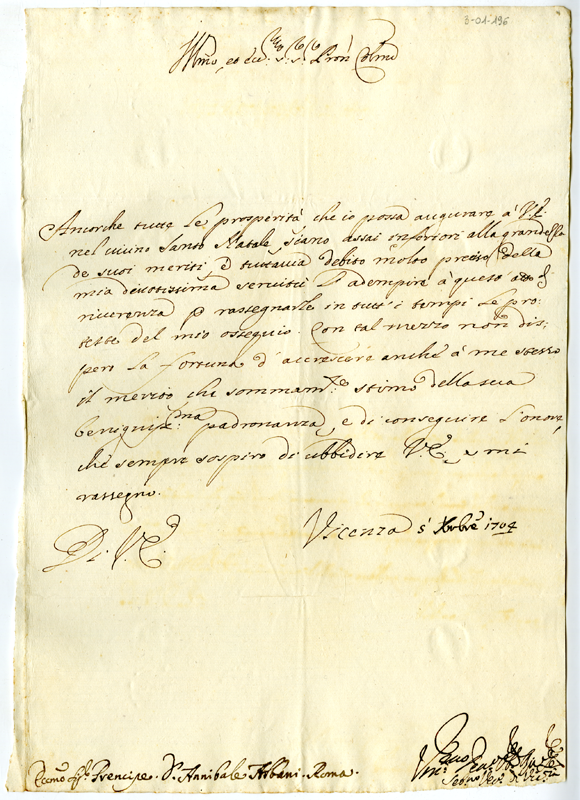 3-01-196
Illmo, et Ecc.mo S.r S.r Pron Colmo
Ancorche tutte le prosperità che io possa augurare à V.E.
nel vicino Santo Natale, siano assai inferiori alla grandezza
de suoi meriti, è tuttavia debito molto preciso della
mia devotissima servitù lo adempire à questo atto di
riverenza p rassegnarle in tutti i tempi le pro-
teste del mio ossequio. Con tal mezzo non dis-
pero la fortuna d'accrescere anche à me stesso
il merito che sommam.te stimo della sua
benignis.ma padronanza, e di conseguire l'onore,
che sempre sospiro di ubbidire V.E. e mi
rassegno.
Di V.E.
Vicenza 5 Xbrbre 1704
Ecc.mo Sig.r Prencipe D. Annibale Albani. Roma.